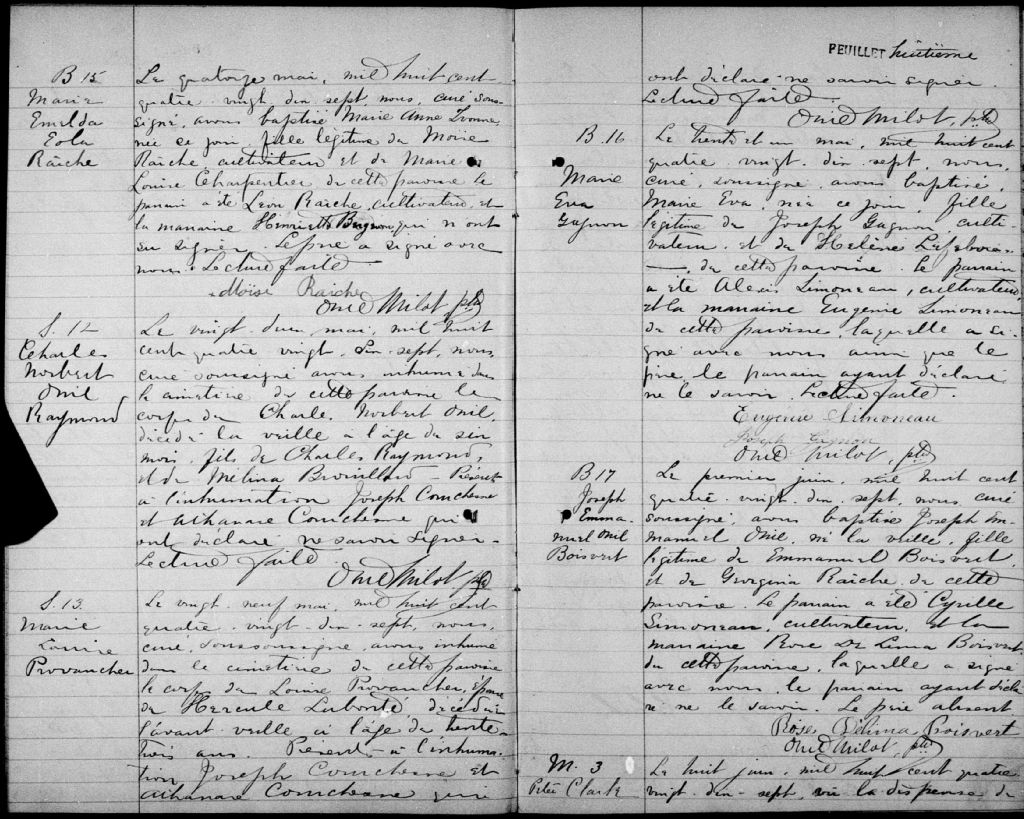 B 15
Marie
Emelda
Eola
Raîche
Le quatorze mai, mil huit cent
quatre vingt dix sept, nous, curé sous-
signé, avons baptisé Marie Anne Ivonne,
née ce jour, fille légitime de Moïse
Raîche cultivateur et de Marie
Louise Charpentier de cette paroisse le
parrain a été Léon Raîche, cultivateur, et
la marraine Henriette qui n ont
su signer. Le père a signé avec
nous. Lecture faite.
Moïse Raiche
Onil Milot, ptre
S. 12
Charles
Norbert
Onil
Raymond
Le vingt deux mai, mil huit
cent quatre vingt, dix-sept, nous,
curé soussigné avons inhumé dans
le cimetière de cette paroisse le
corps de Charle, Norbert Onil,
décédé la veille à l'âge de six
mois, fils de Charles Raymond,
et de Mélina Brouillard - Présents
à l'inhumation Joseph Courchesne
et Athanase Courchesne qui
ont déclaré ne savoir signer -
Lecture faite
Onil Milot, ptre
S. 13.
Marie
Louise
Provancher
Le vingt-neuf mai, mil huit cent
quatre-vingt-dix-sept, nous,
curé, soussousigné, avons inhumé
dans le cimetière de cette paroisse
le corps de Louise Provancher, épouse
de Hercule Laborté, décédée
l'avant veille à l'âge de trente-
trois ans. Présent-à l'inhuma-
tion, Joseph Courchesne et
Athanase Courchesne qui
FEUILLET huitième
ont déclaré ne savoir signer.
Lecture faite.
Onil Milot, ptre
B. 16
Marie
Eva
Gagnon
Le trente et un mai, mil huit cent
quatre vingt-dix-sept, nous,
curé, soussigné, avons baptisé
Marie Eva, née ce jour, fille
légitime de Joseph Gagnon, culti-
vateur, et de Hélène Lefebvre
de cette paroisse. le parrain
a été Alexis Simoneau, cultivateur,
et la marraine Eugénie Simoneau
de cette paroisse, laquelle a si-
gné avec nous ainsi que le
père, le parrain ayant déclaré
ne le savoir. Lecture faite.
Eugénie Simoneau
Joseph Gagnon
Onil Milot, ptre
B 17
Joseph
Emma-
nuel Onil
Boisvert
Le premier juin, mil huit cent
quatre-vingt-dix-sept, nous curé
soussigné, avons baptisé Joseph Em-
manuel Onil, né la veille, fille
légitime de Emmanuel Boisvert
et de Georgina Raîche de cette
paroisse. Le parrain a été Cyrille
Simoneau, cultivateur, et la
marraine Rose De Lima Boisvert
de cette paroisse, laquelle a signé
avec nous, le parrain ayant décla-
ré ne le savoir. Le père absent
Rose Délima Boisvert
Onil Milot, ptre
M. 3
Peter Clark
Le huit juin, mil huit cent quatre
vingt-dix-sept, vu la dispense de